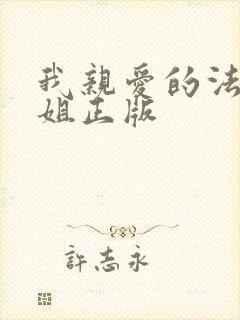 我親愛的法
姐正版
許志永